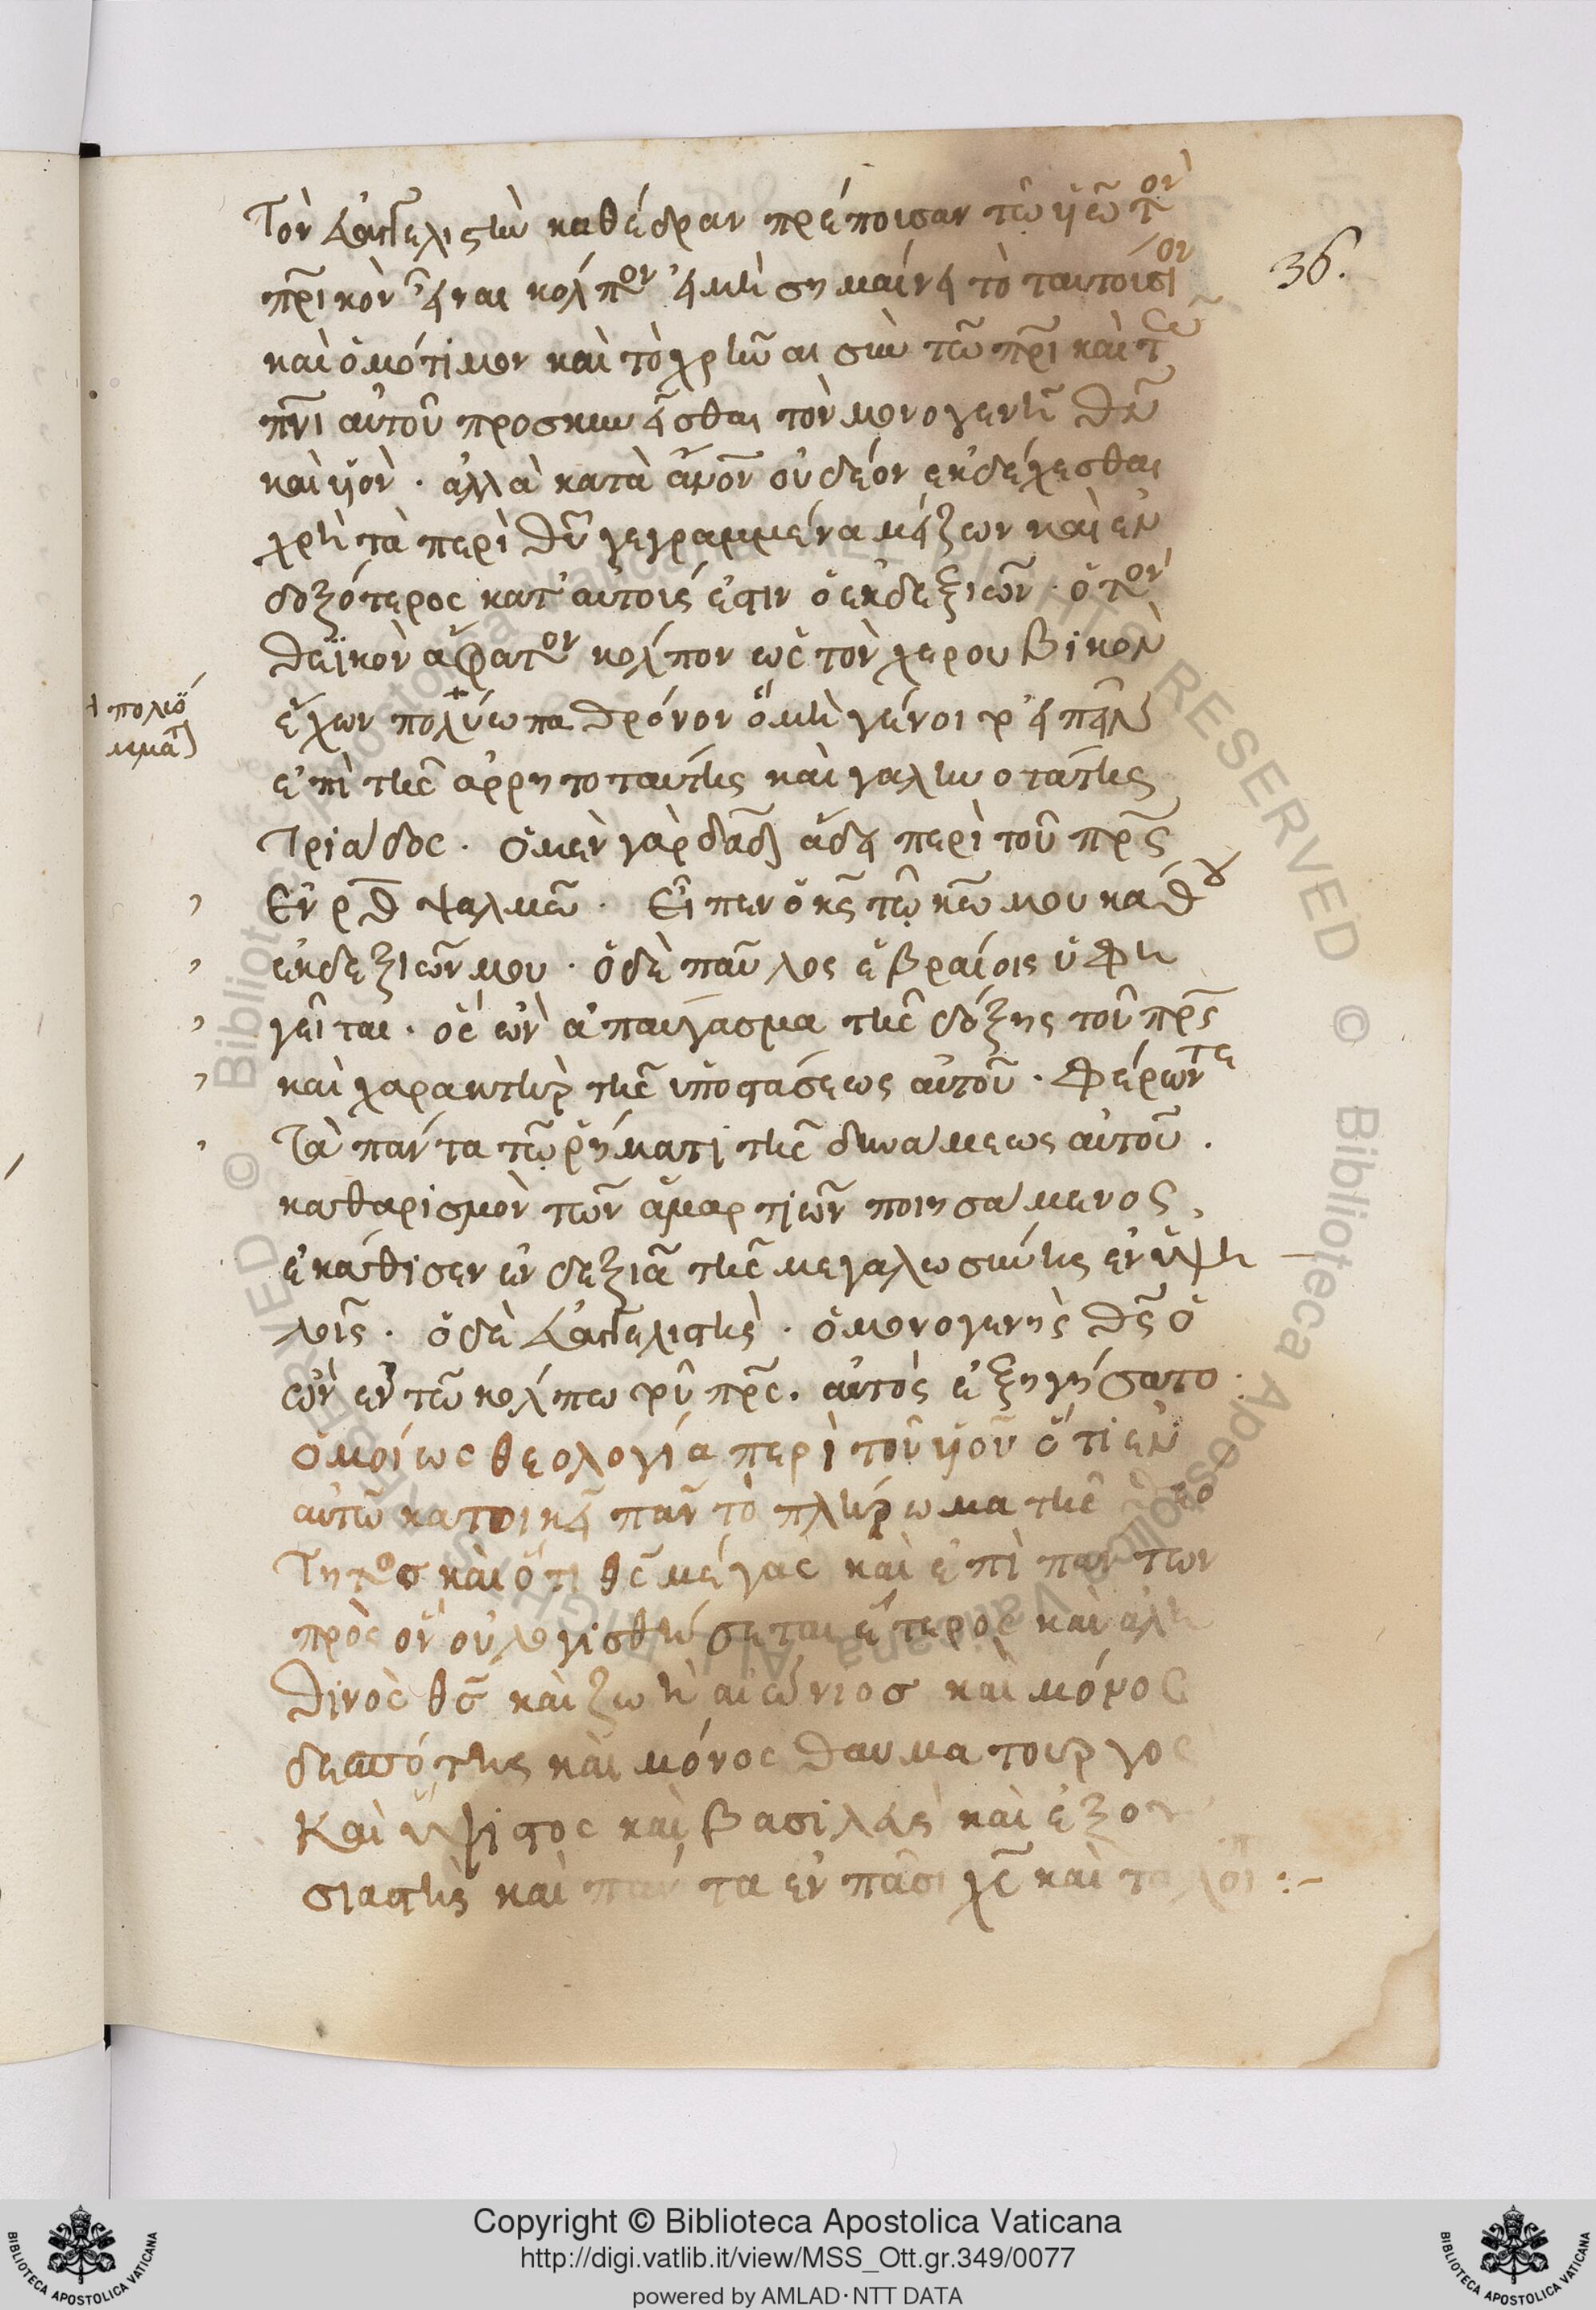 Τὸν εὐαγγελιστὴν καθέδραν πρέπουσαν τῶ υἱῶ τὸν
πρ̅ικὸν εἶναι κόλπον εἰ μὴ σημαίνει τὸ ταυτούσιον
καὶ ὁμότιμον καὶ τὸ χρῆναι σὺν τῶ πρ̅ι καὶ τῶ
πν̅ι αὐτοῦ προσκυνεῖσθαι τὸν μονογενῆ θν̅
καὶ υἱὸν · ἀλλὰ κατὰ ἄνον οὐδέον ἐκδέχεσθαι
χρὴ τὰ περὶ θυ̅ γεγραμμένα μείζων καὶ ἐν
δοξότερος κατ' αὐτούς ἐστιν ὁ ἐκ δεξιῶν · ὁ τὸν
θεϊκὸν ἄφατον κόλπον ὡς τὸν χερουβικὸν
ἔχων πολυωπα θρόνον ὃ μὴ γένοιτο εἰπεῖν
ἐπὶ τῆς ἀρρητοτάτης καὶ γαληνοτάτης
Τριάδος · ὁ μὲν γὰρ δα̅δ ἄδει περὶ τοῦ πρ̅ς
Ἐν ρθ̅ ψαλμῶ · Εἶπεν ὁ κς̅ τῶ κω̅ μου κάθου
ἐκ δεξιῶν μου · ὁ δὲ παῦλος ἑβραίοις ὑφη
γεῖται · ὃς ὢν ἀπαύγασμα τῆς δόξης τοῦ πρ̅ς
καὶ χαρακτὴρ τῆς ὑποστάσεως αὐτοῦ · φέρων τε
Τὰ πάντα τῶ ῥήματι τῆς δυνάμεως αὐτοῦ .
καθαρισμὸν τῶν ἁμαρτιῶν ποιησάμενος ,
ἐκάθισεν ἐν δεξιᾶ τῆς μεγαλωσύνης ἐν ὑψη
λοῖς · ὁ δὲ εὐαγγελιστὴς · ὁ μονογενὴς θς̅ ὁ
ὢν ἐν τῶ κόλπω τοῦ πρ̅ς · αὐτὸς ἐξηγήσατο ·
ὁμοίως θεολογία περὶ τοῦ υἱοῦ ὅτι ἐν
αὐτῶ κατοικεῖ πᾶν τὸ πλήρωμα τῆς
Τητος καὶ ὅτι θς̅ μέγας καὶ ἐπὶ πάντων
πρὸς ὃν οὐ λογισθήσεται ἕτερος καὶ ἀλη
θινὸς θς̅ καὶ ζωὴ αἰώνιος καὶ μόνος
δεσπότης καὶ μόνος θαυματουργὸς
Καὶ ὕψιστος καὶ βασιλεὺς καὶ ἐξου
σιαστὴς καὶ πάντα ἐν πᾶσι χς̅ καὶ τὰ λοι :–
36.
Copyright © Biblioteca Apostolica Vaticana
http://digi.vatlib.it/view/MSS_Ott.gr.349/0077
powered by AMLAD·NTT DATA
BIBLIOTECA APOSTOLICA VATICANA
BIBLIOTECA APOSTOLICA VATICANA